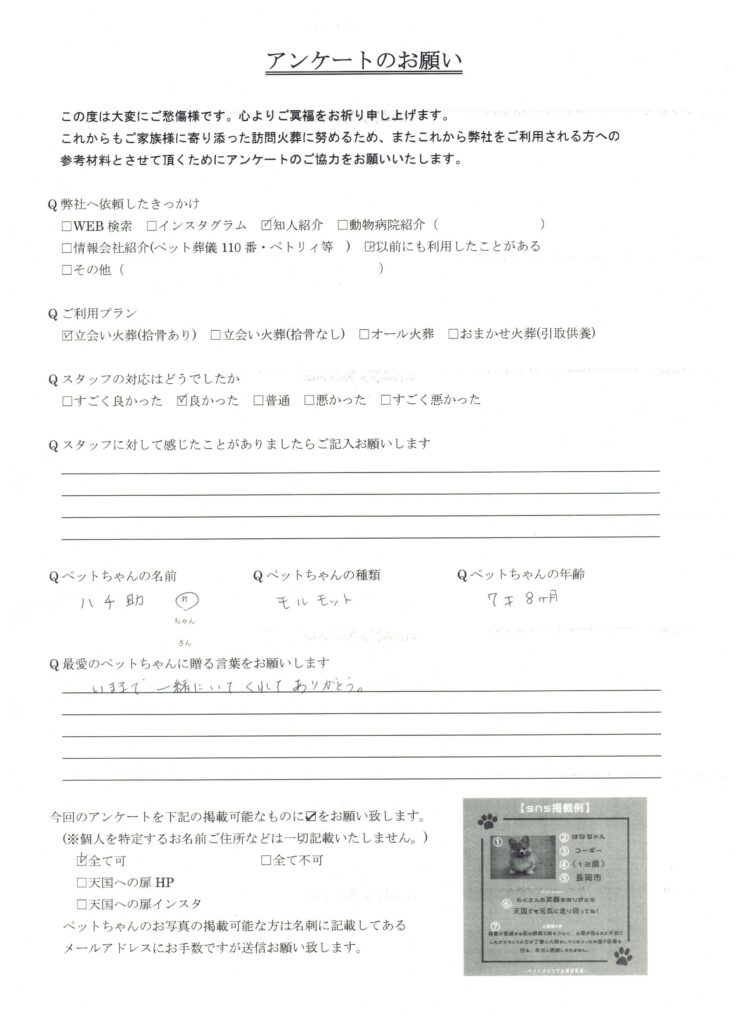 アンケートのお願い
この度は大変にご愁傷様です。心よりご冥福をお祈り申し上げます。
これからもご家族様に寄り添った訪問火葬に努めるため、またこれから弊社をご利用される方への
参考材料とさせて頂くためにアンケートのご協力をお願いいたします。
Q 弊社へ依頼したきっかけ
□WEB 検索 □インスタグラム ☑知人紹介 □動物病院紹介（ ）
□情報会社紹介(ペット葬儀 110 番・ペトリィ等 ) ☑以前にも利用したことがある
□その他（ ）
Q ご利用プラン
☑立会い火葬(拾骨あり) □立会い火葬(拾骨なし) □オール火葬 □おまかせ火葬(引取供養)
Q スタッフの対応はどうでしたか
□すごく良かった ☑良かった □普通 □悪かった □すごく悪かった
Q スタッフに対して感じたことがありましたらご記入お願いします
Q ペットちゃんの名前 Q ペットちゃんの種類 Q ペットちゃんの年齢
ハチ助 モルモット 7才8ヶ月
ちゃん
さん
Q 最愛のペットちゃんに贈る言葉をお願いします
いままで一緒にいてくれてありがとう。
今回のアンケートを下記の掲載可能なものに☑をお願い致します。
(※個人を特定するお名前ご住所などは一切記載いたしません。)
☑全て可 □全て不可
□天国への扉 HP
□天国への扉インスタ
ペットちゃんのお写真の掲載可能な方は名刺に記載してある
メールアドレスにお手数ですが送信お願い致します。
【sns掲載例】
① ② はなちゃん
③ コーギー
④ (12歳)
⑤ 長岡市
⑥ たくさんの笑顔をありがとう
天国でも元気に走り回ってね!
⑦